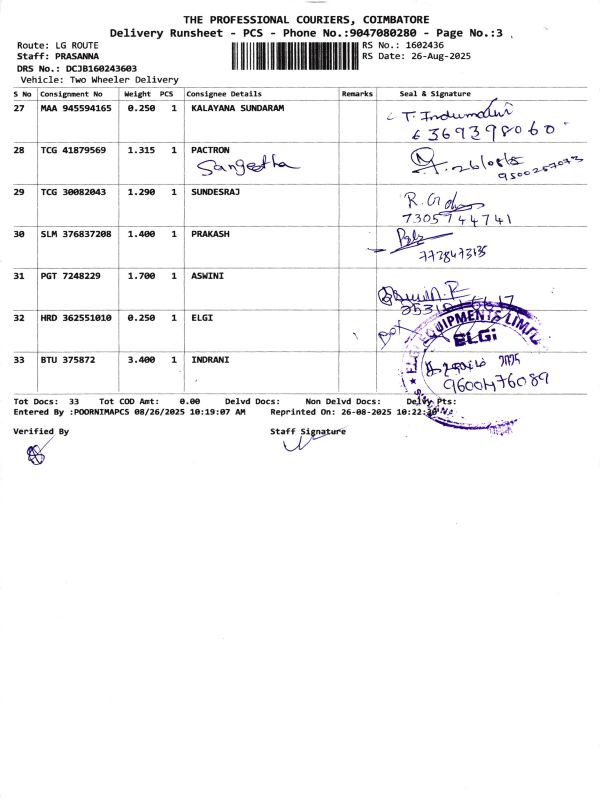 THE PROFESSIONAL COURIERS, COIMBATORE
Delivery Runsheet - PCS - Phone No.:9047080280 - Page No.:3
Route: LG ROUTE RS No.: 1602436
Staff: PRASANNA RS Date: 26-Aug-2025
DRS No.: DCJB160243603
Vehicle: Two Wheeler Delivery
S No Consignment No Weight PCS Consignee Details Remarks Seal & Signature
27 MAA 945594165 0.250 1 KALAYANA SUNDARAM T. Indumathi
6369398060
28 TCG 41879569 1.315 1 PACTRON 26/08/25
Sangeetha 9500267073
29 TCG 30082043 1.290 1 SUNDESRAJ
7305744741
30 SLM 376837208 1.400 1 PRAKASH
31 PGT 7248229 1.700 1 ASWINI
32 HRD 362551010 0.250 1 ELGI
ELGI EQUIPMENTS LIMITED
ELGi
33 BTU 375872 3.400 1 INDRANI
9600476089
Tot Docs: 33 Tot COD Amt: 0.00 Delvd Docs: Non Delvd Docs: Delvy Pts:
Entered By :POORNIMAPCS 08/26/2025 10:19:07 AM Reprinted On: 26-08-2025 10:22:30
Verified By Staff Signature